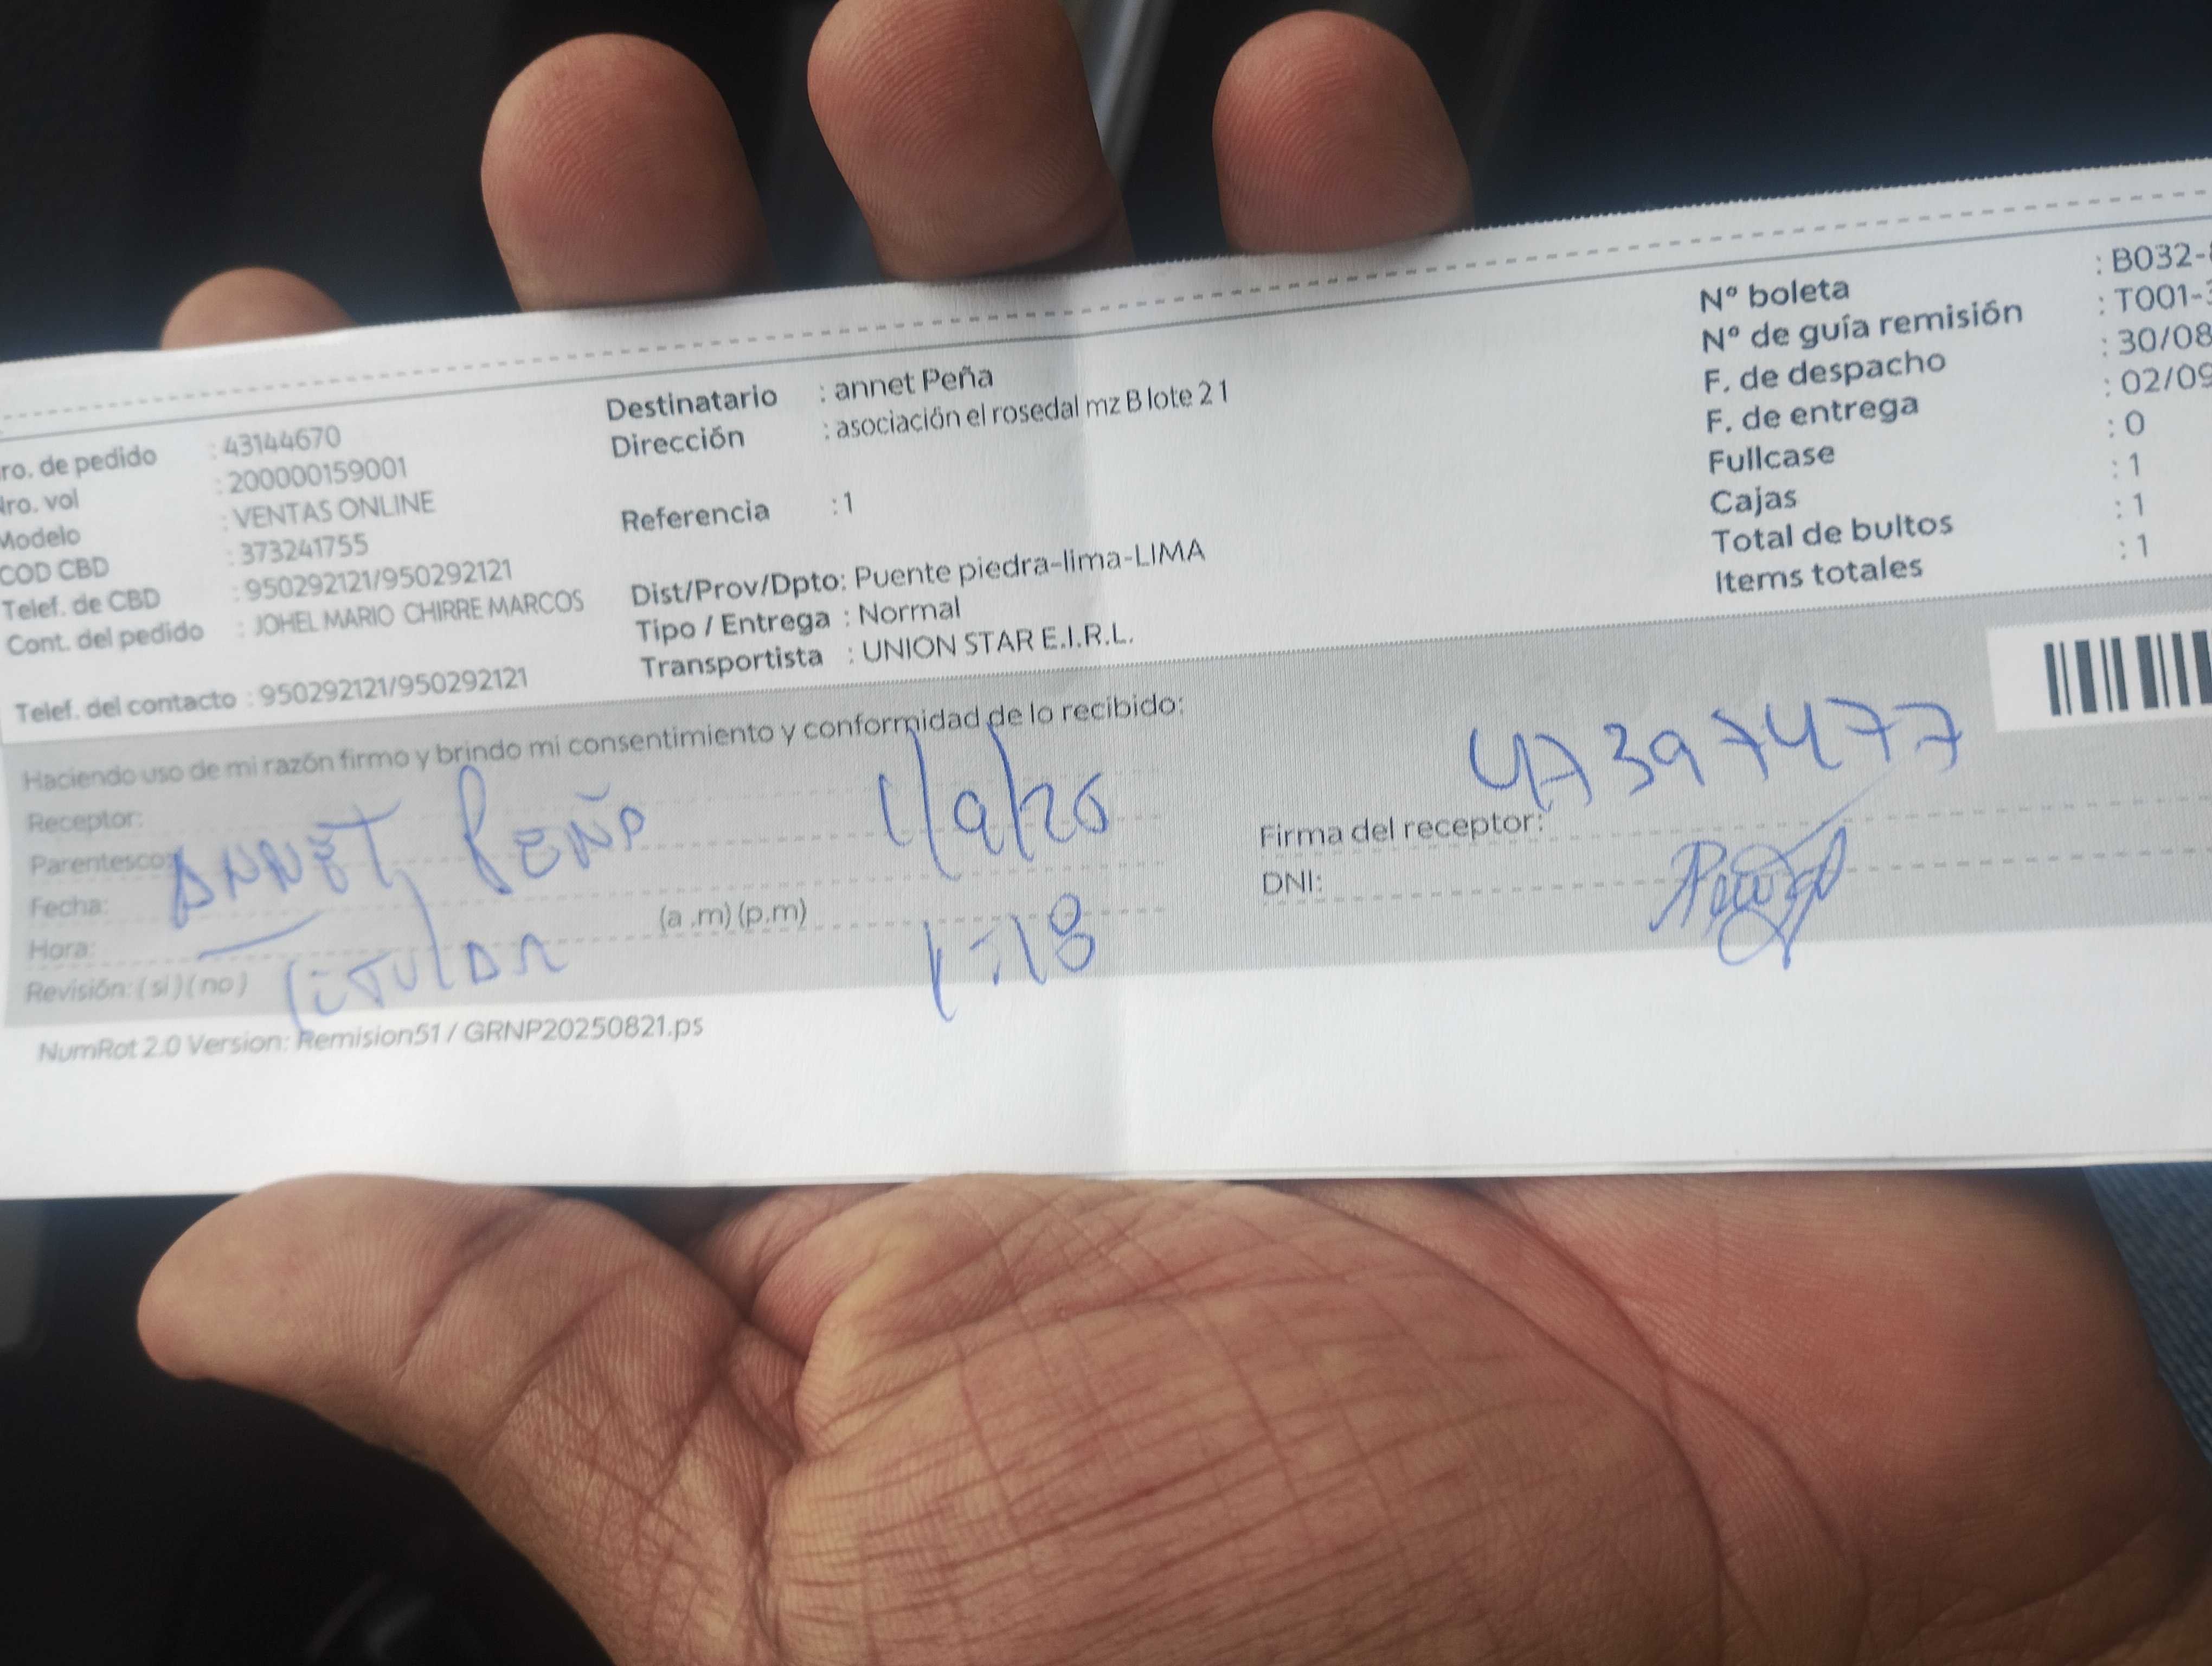 ro. de pedido : 43144670
Nro. vol : 200000159001
Modelo : VENTAS ONLINE
COD CBD : 373241755
Telef. de CBD : 950292121/950292121
Cont. del pedido : JOHEL MARIO CHIRRE MARCOS
Telef. del contacto : 950292121/950292121
Destinatario : annet Peña
Dirección : asociación el rosedal mz B lote 21
Referencia : 1
Dist/Prov/Dpto: Puente piedra-lima-LIMA
Tipo / Entrega : Normal
Transportista : UNION STAR E.I.R.L.
Nº boleta : B032-
Nº de guía remisión : T001-3
F. de despacho : 30/08
F. de entrega : 02/09
Fullcase : 0
Cajas : 1
Total de bultos : 1
Items totales : 1
Haciendo uso de mi razón firmo y brindo mi consentimiento y conformidad de lo recibido:
Receptor:
Parentesco:
ANNET PEÑA
1/9/26
Fecha:
Hora: (a .m) (p.m)
Revisión: ( si ) ( no )
TiTULAR
1:18
Firma del receptor:
DNI:
NumRot 2.0 Version: Remision51 / GRNP20250821.ps